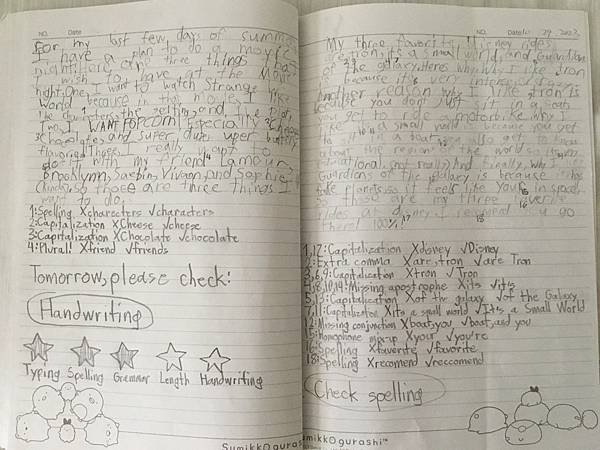 NO. Date
For my last few days of summer
I have a plan to do a movie
night. Here are three things that
I wish to have at the movie
night. One, I want to watch Strange
World because in that movie I like
the charecters, the setting, and the plot.
Two, I WANT POPCORN! Specially Cheese
chocolate, and super duper uper buttery
flavoring. Three, I really want to
with my friend Lamour,
Brooklynn, Saebin, Vivaan, and Sophie
So those are three things I
want to do.
1:Spelling Xcharecters √characters
2:Capitalization XCheese √cheese
3:Capitalization XChocolate √chocolate
4:Plural! Xfriend √friends
Tomorrow, please check:
Handwriting
Typing Spelling Grammar Length Handwriting
Sumikkogurashi
NO. Date 10 29 2023
My three favorite disney rides
are tron, it's a small world, and Guardian
of the galaxy. Here's why I like tron
because it's very intense.
Another reason why I like tron is
because you don't just sit in a
you get to ride a motorbike. Why I
like it's a small world is because you get
to a boat, you also get to know
about the region of the world so it's very
educational, (not really) And finally, why
Guardians of the galaxy is because it has
fake planets, so it feels like your in space.
So those are my three faverite
rides at disney. I recomend you go
there! 100%!
1,12:Capitalization Xdisney √Disney
2:Extra comma Xare,tron √are Tron
3,6,9:Capitalization Xtron √Tron
4,8,10,14:Missing apostrophe Xits √it's
5,13:Capitalization Xof the galaxy √of the Galaxy
7,11:Capitalization Xits a small world √It's a Small World
12:Missing conjunction Xboat,you √boat,and you
15:Homophone mix-up Xyour √you're
16:Spelling Xfaverite √favorite
18:Spelling Xrecomend √reccomend
Check spelling
Sumikkogurashi™